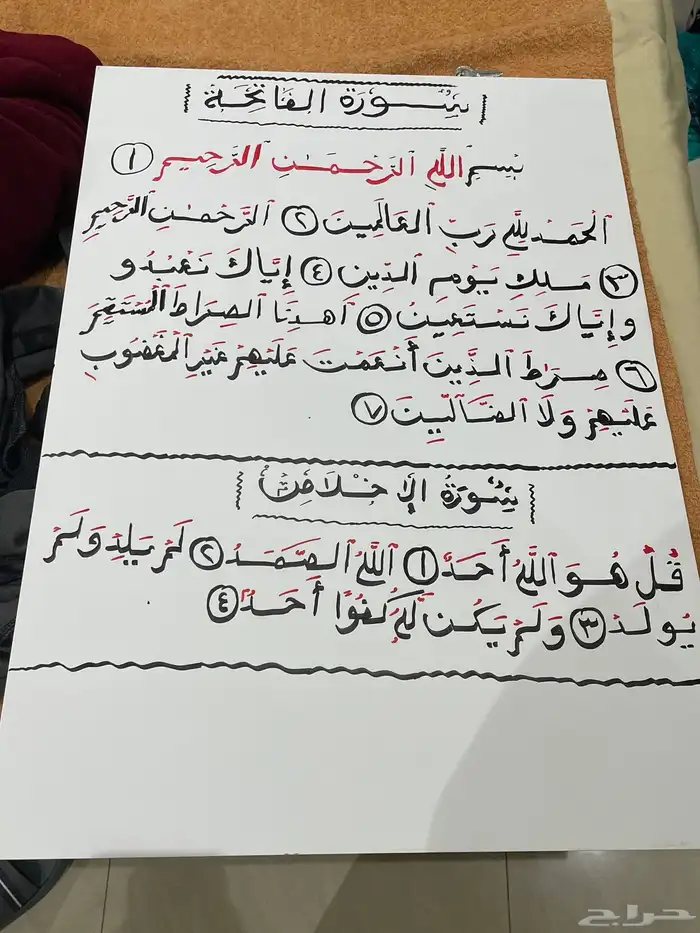 سورة الفاتحة
بسم الله الرحمن الرحيم ١
الحمد لله رب العالمين ٢ الرحمن الرحيم
٣ ملك يوم الدين ٤ إياك نعبدو
وإياك نستعين ٥ اهدنا الصراط المستقيم
٦ صراط الذين أنعمت عليهم غير المغضوب
عليهم ولا الضالين ٧
سورة الإخلاص
قل هو الله أحد ١ الله الصمد ٢ لم يلد ولم
يولد ٣ ولم يكن له كفوا أحد ٤
حراج